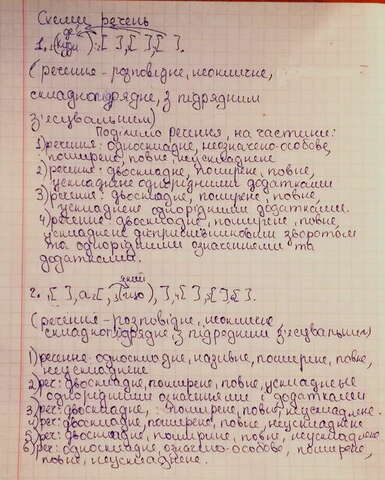 Схеми речень
де
1. (куди ) : [ ], [ ], [ ].
( речення - розповідне, неокличне,
складнопідрядне, з підрядним
з'ясувальним)
Поділимо речення, на частини:
1) речення: односкладне, неозначено-особове,
поширене, повне, неускладнене
2) речення: двоскладне, поширене, повне,
ускладнене однорідними додатками
3) речення: двоскладне, поширене, повне,
ускладнене однорідними додатками.
4) речення двоскладне, поширене, повне,
ускладнене дієприслівниковим зворотом
та однорідними означеннями та
додатками.
який
2. 1[ ], а 2[ , 3( що ), ], 4[ ], 5[ ], 6[ ].
( речення - розповідне, неокличне
складнопідрядне, з підрядним з'ясувальним)
1) речення: односкладне, називне, поширене, повне,
неускладнене
2) реч: двоскладне, поширене, повне, ускладнене
однорідними означеннями і додатками
3) реч: двоскладне, поширене, повне, неускладнене.
4) реч: двоскладне, поширене, повне, неускладнене
5) реч: двоскладне, поширене, повне, неускладнене
6) реч: односкладне, означено-особове, поширене,
повне, неускладнене.